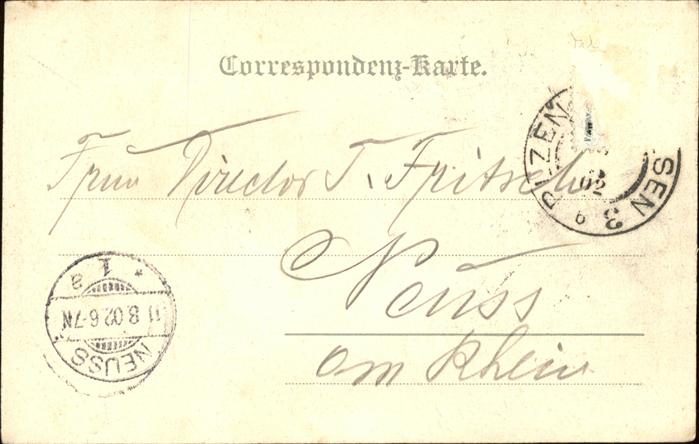 Correspondenz-Karte.
PILZEN
SEN 3
a
02
Frau Director T. Fritsche
Neuss
am Rhein
* 1 a
11.8.02.6-7N.
NEUSS